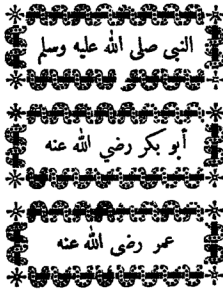 النبي صلى الله عليه وسلم
أبو بكر رضي الله عنه
عمر رضى الله عنه